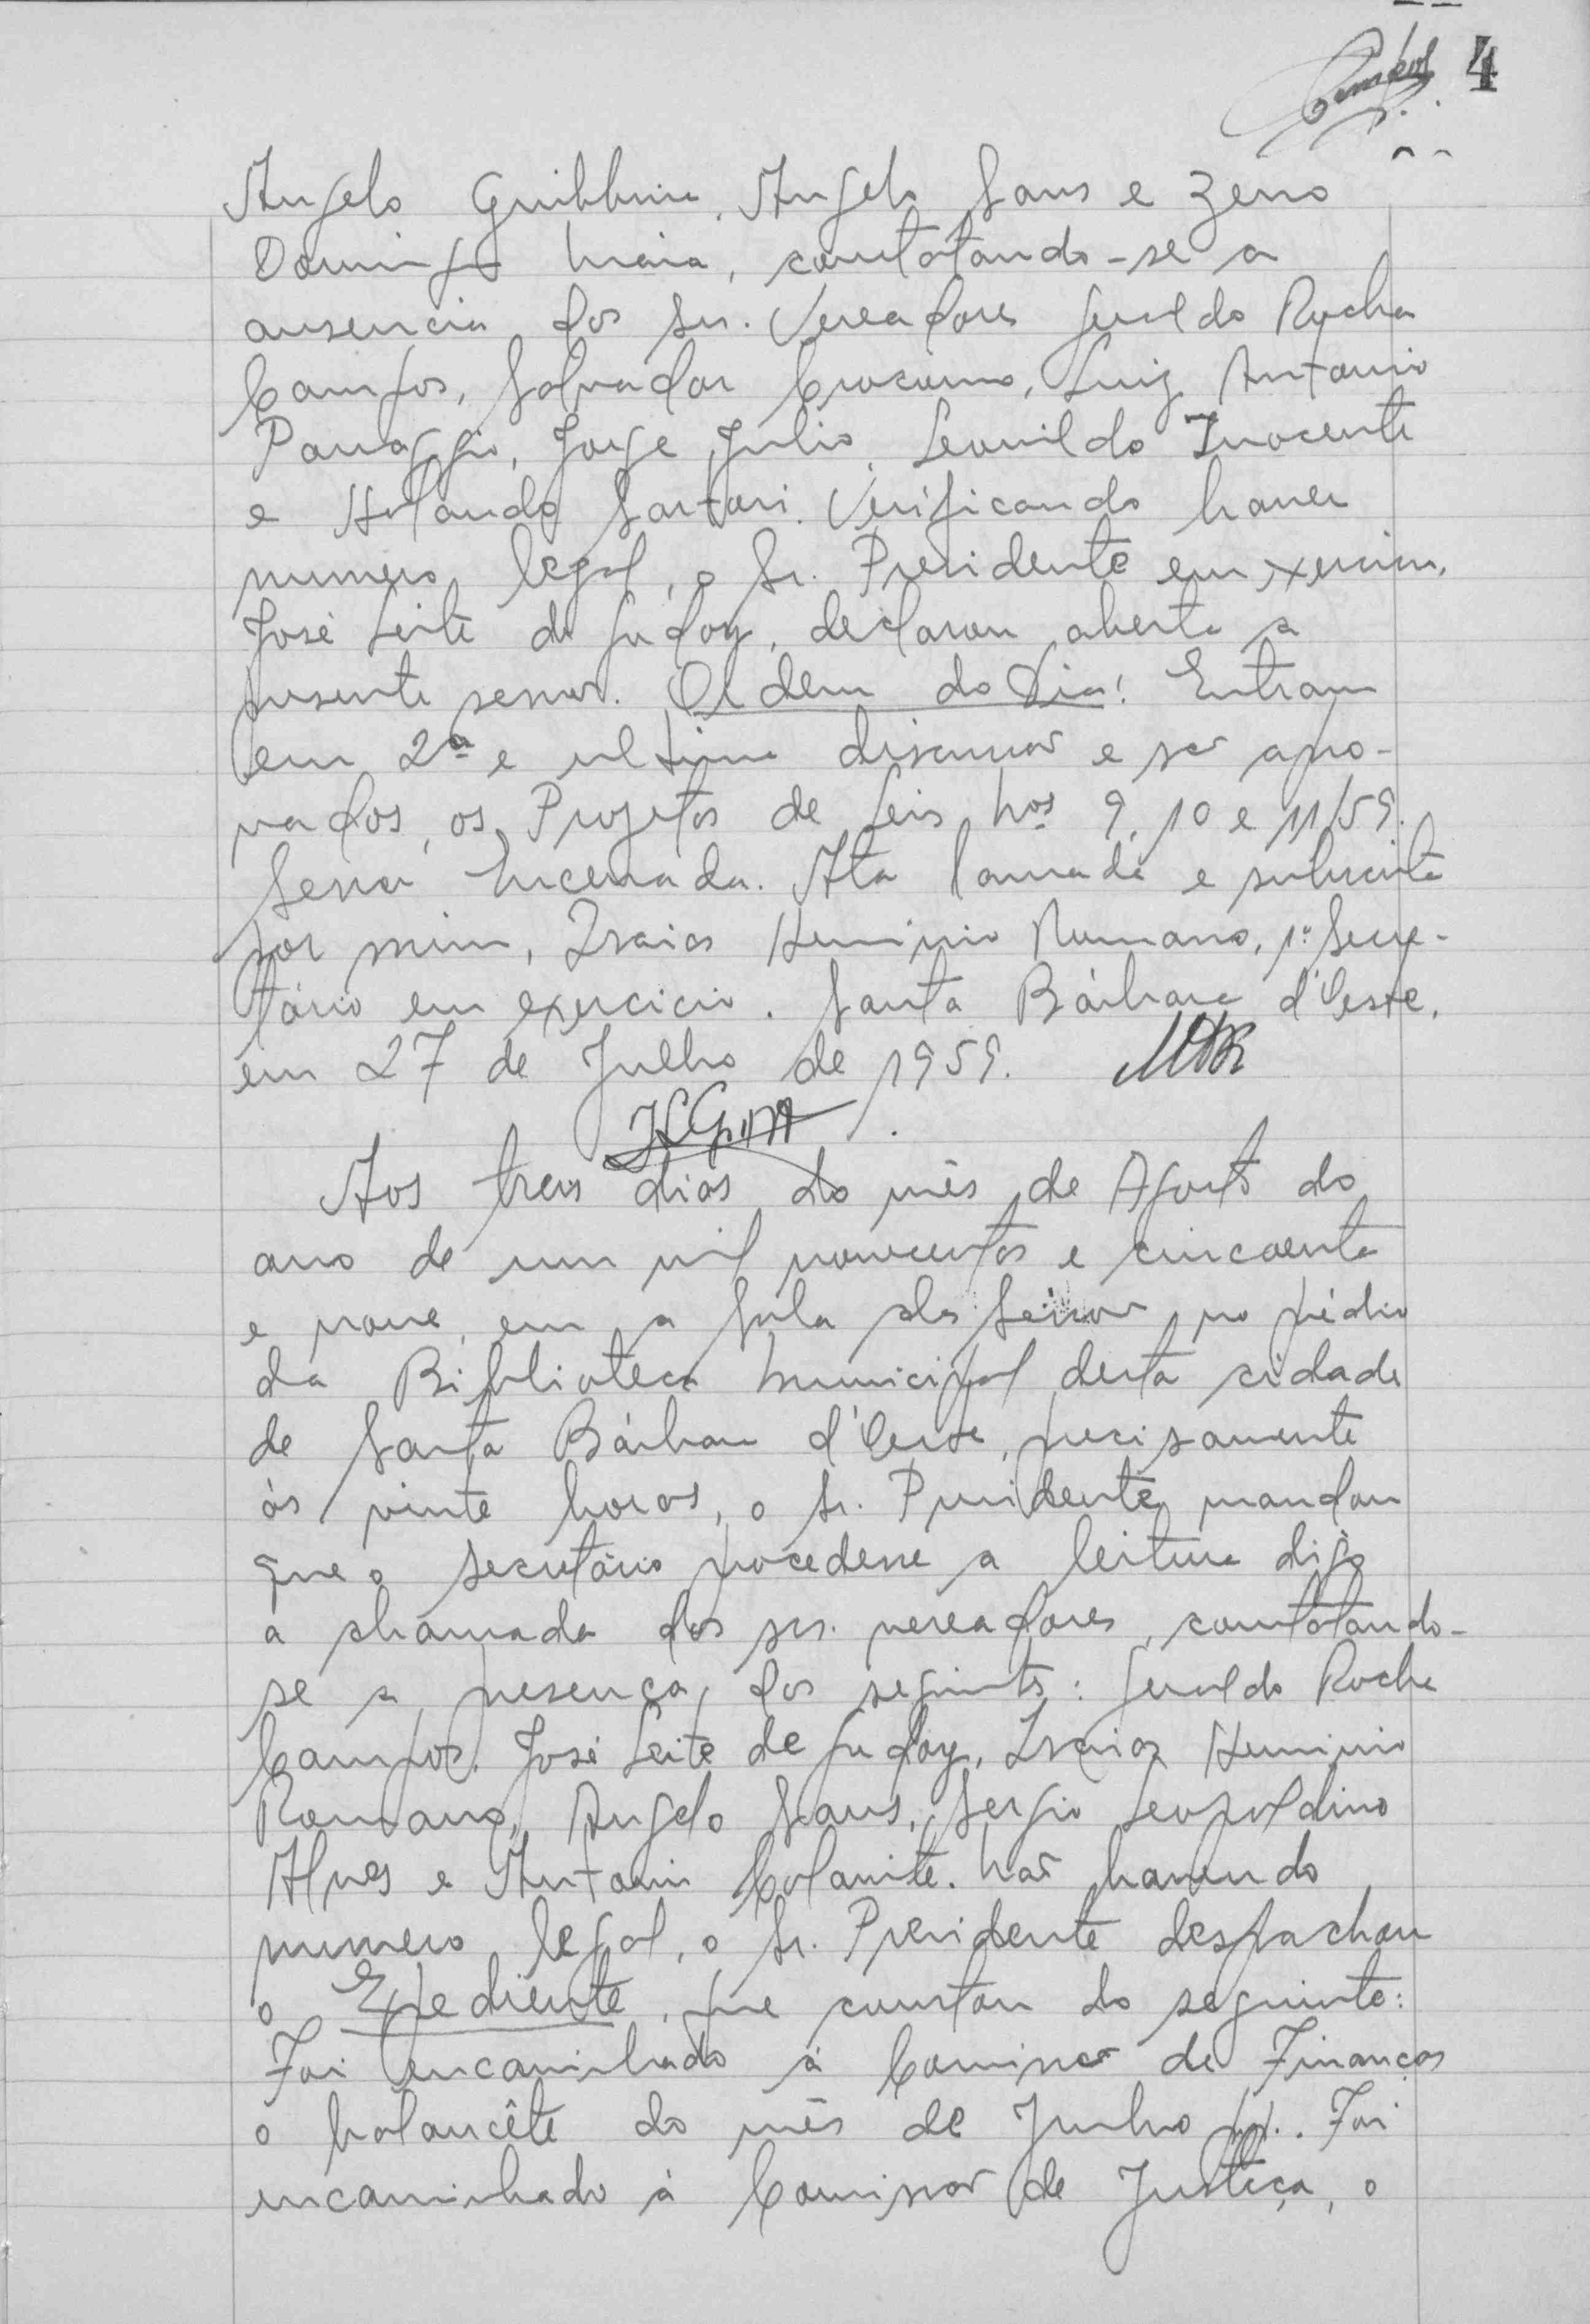 4
Angelo Guilhline, Angelo Sans e Zeno
Domingos Maia, constatando-se a
ausencia dos srs. Vereadores Geraldo Rocha
Campos, Salvador Crozumo, Luiz Antonio
Panaggio, Jorge Julio, Leonildo Inocente
e Orlando Sartori. Verificando haver
numero legal, o Sr. Presidente em exercicio,
José Leite de Godoy, declarou aberta a
presente sessão. Ordem do Dia: Entram
em 2ª e ultima discussão e são apro-
vados, os Projetos de Leis Nos 9, 10 e 11/59.
Sessão Encerrada. Ata lavrada e subscrita
por mim, Izaias Herminio Romano, 1º Secre-
tário em exercicio. Santa Bárbara d'Oeste,
em 27 de Julho de 1959.
Aos treis dias do mês de Agosto do
ano de um mil novecentos e cincoenta
e nove, em a Sala das Sessões no prédio
da Biblioteca Municipal desta cidade
de Santa Bárbara d'Oeste, precisamente
ás vinte horas, o Sr. Presidente mandou
que o secretário procedesse a leitura digo
a chamada dos srs. vereadores, constatando-
se a presença dos seguintes: Geraldo Rocha
Campos, José Leite de Godoy, Izaias Herminio
Romano, Angelo Sans, Sergio Leopoldino
Alves e Antonio Colamite. Não havendo
numero legal, o Sr. Presidente despachou
o Expediente, que constou do seguinte:
Foi encaminhado á Comissão de Finanças
o balancête do mês de Junho pp.. Foi
encaminhado á Comissão de Justiça, o